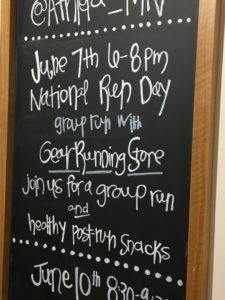 @Athleta_MN
June 7th 6-8pm
National Run Day
group run with
Gear Running Store
join us for a group run
and
healthy post-run snacks
June 10th 8:30-9: